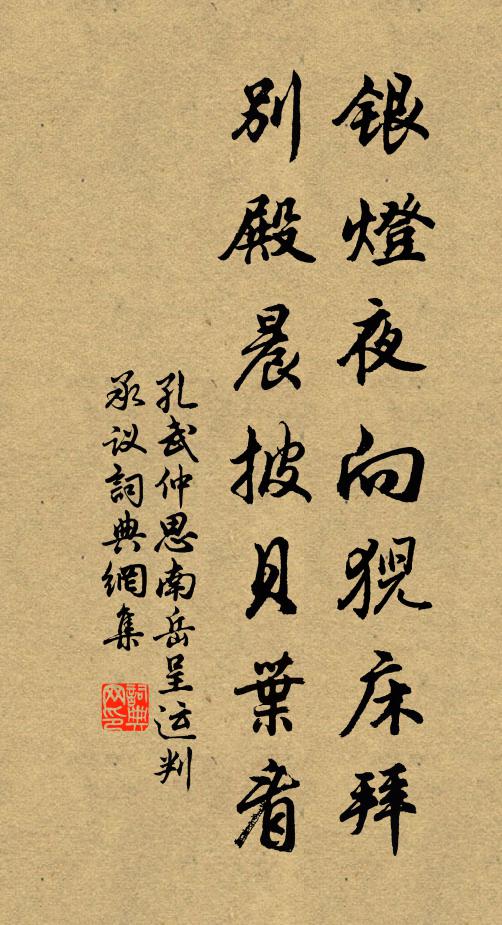 银燈夜向猊床拜
别殿晨披貝葉看
孔武仲思南岳呈运判
承议詞典網集
詞典
网印